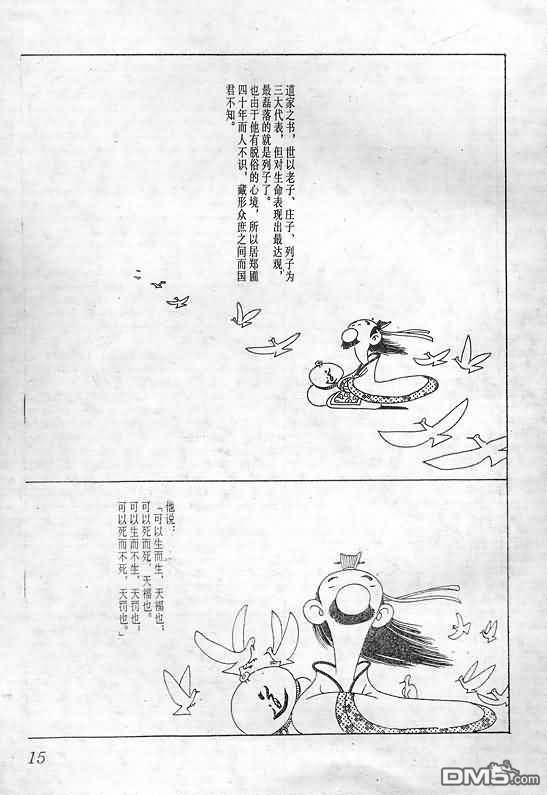 道家之书，世以老子、庄子、列子为
三大代表，但对生命表现出最达观，
最磊落的就是列子了。
也由于他有脱俗的心境，所以居郑圃
四十年而人不识，藏形众庶之间而国
君不知。
道
他说：
「可以生而生，天福也；
可以死而死，天福也。
可以生而不生，天罚也；
可以死而不死，天罚也。」
道
15
DM5.com
动漫屋